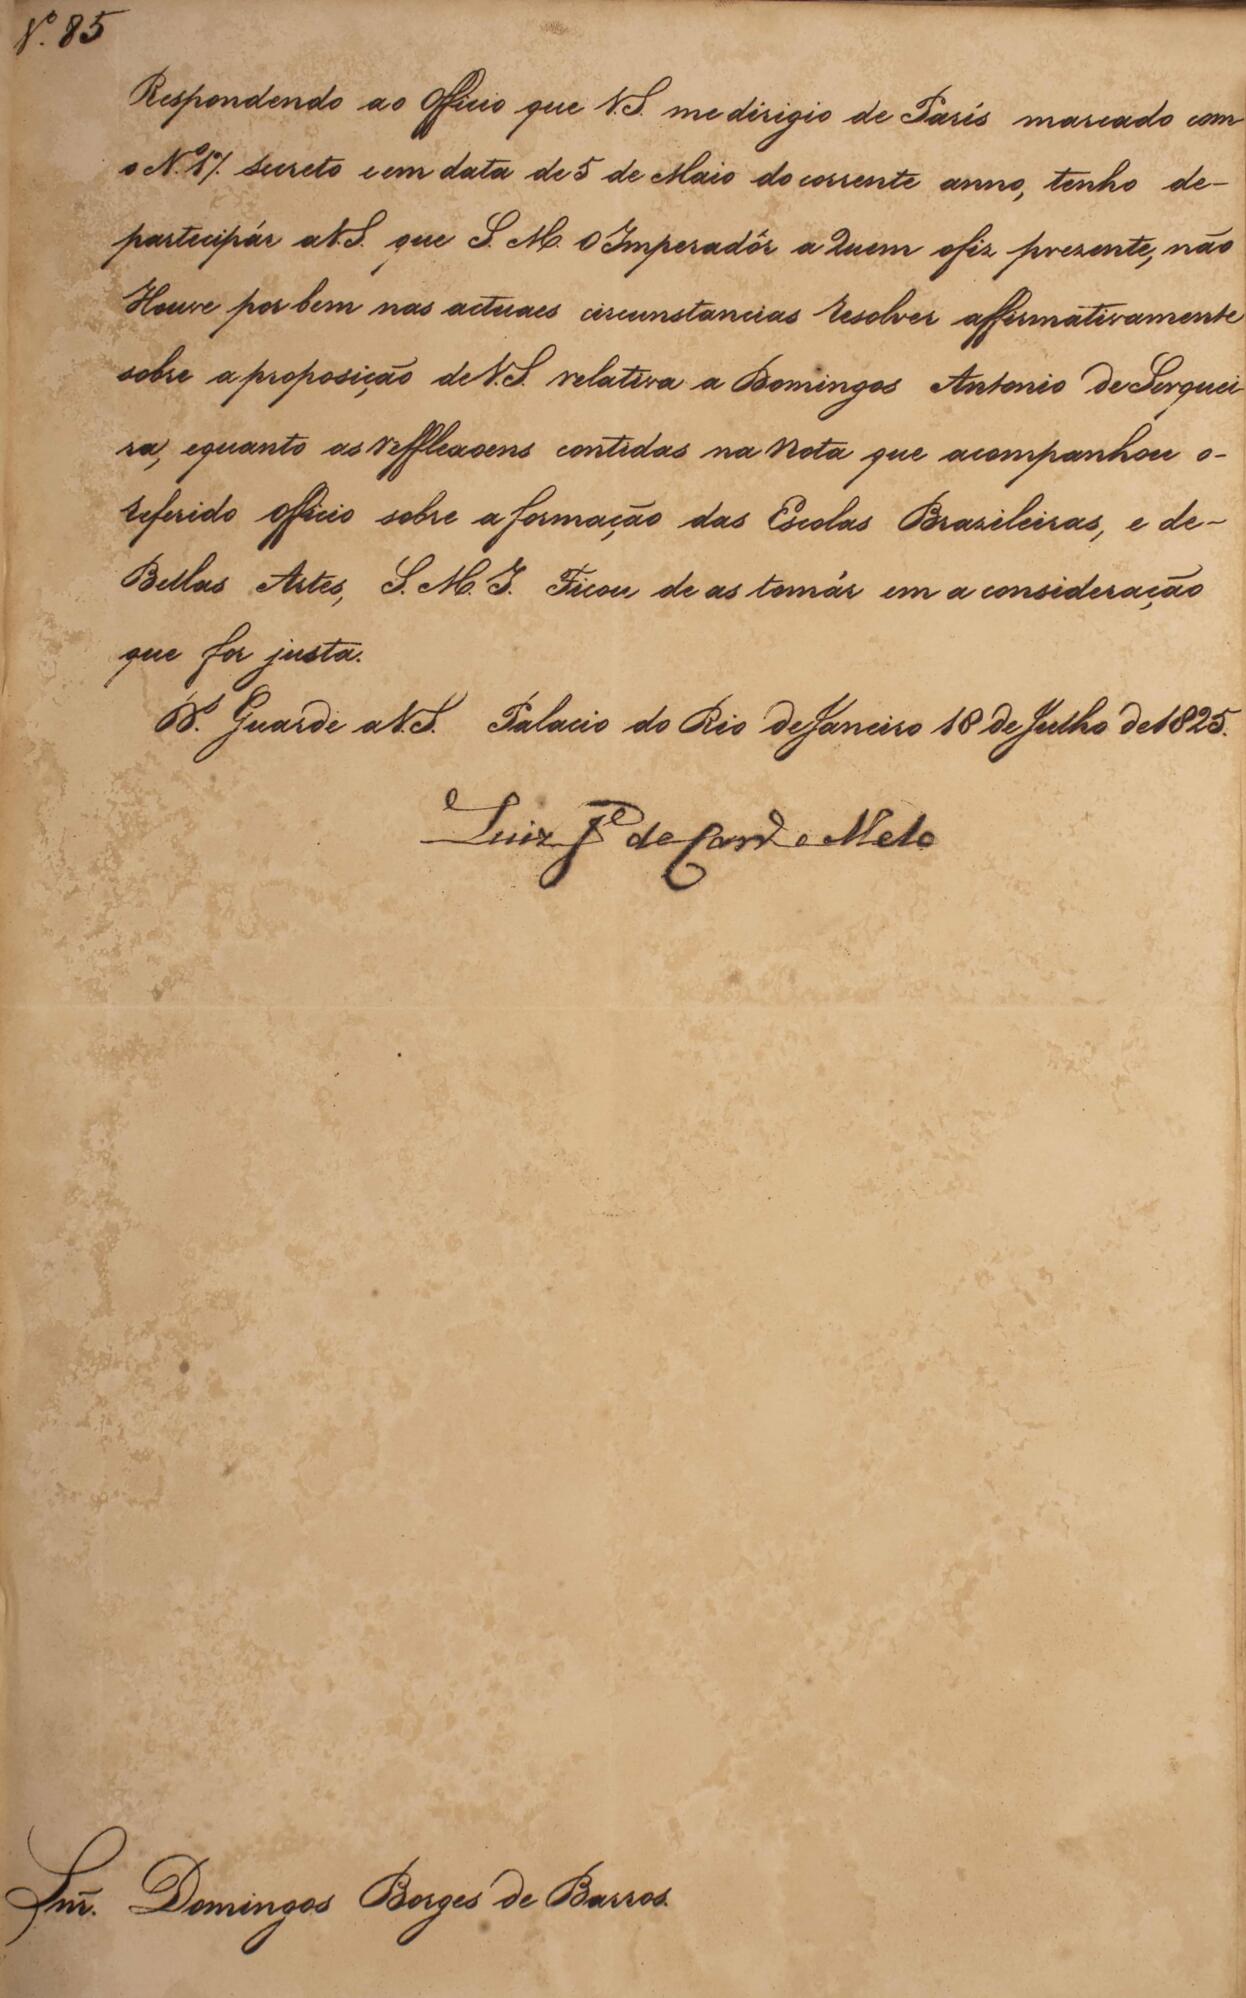 Nº 85
Respondendo ao Officio que V.S. me dirigio de Paris marcado com
o Nº 1 secreto e em data de 5 de Maio do corrente anno, tenho de-
partecipár a V.S. que S. M. O Imperadôr a Quem o fiz prezente, não
Houve por bem nas actuaes circunstancias resolver affirmativamente
sobre a proposição de V.S. relativa a Domingos Antonio de Serquei
ra, e quanto as refflexoens contidas na Nota que acompanhou o-
referido Officio sobre a formação das Escolas Brazileiras, e de-
Bellas Artes, S. M. I. Ficou de as tomár em a consideração
que for justa.
D.s Guarde a V.S. Palacio do Rio de Janeiro 18 de Julho de 1825.
Luiz Jº de Carvº e Melo
Snr. Domingos Borges de Barros.